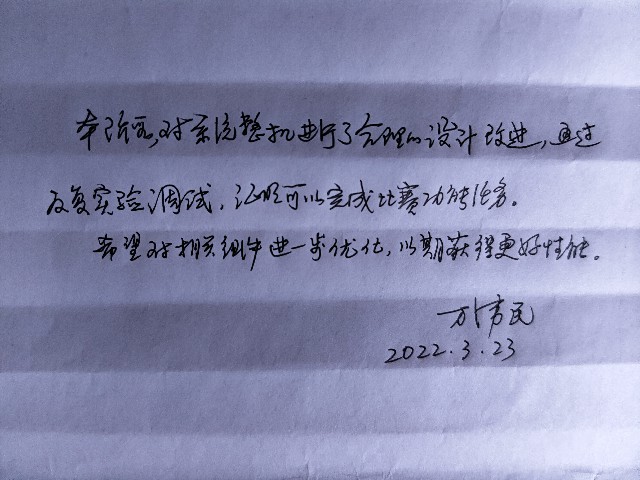 对系统整机进行了合理的设计改进，通过
反复实验调试，证明可以完成比赛功能任务。
希望对相关组件进一步优化，以期获得更好性能。
2022.3.23